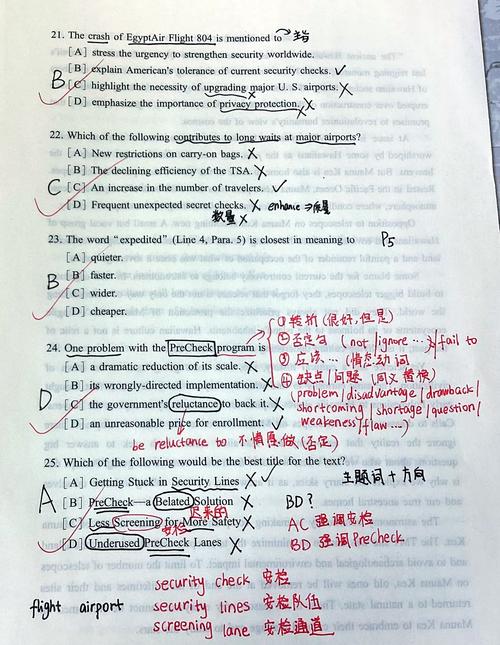 21. The crash of EgyptAir Flight 804 is mentioned to
[A] stress the urgency to strengthen security worldwide.
B [B] explain American's tolerance of current security checks. ✓
[C] highlight the necessity of upgrading major U. S. airports. ×
[D] emphasize the importance of privacy protection. ×
22. Which of the following contributes to long waits at major airports?
[A] New restrictions on carry-on bags. ×
[B] The declining efficiency of the TSA. ×
C [C] An increase in the number of travelers. ✓
[D] Frequent unexpected secret checks. × enhance → 质量
数量 ×
23. The word "expedited" (Line 4, Para. 5) is closest in meaning to P5
[A] quieter.
B [B] faster.
[C] wider.
[D] cheaper.
① 转折 (很好,但是)
24. One problem with the PreCheck program is ② 否定句 (not / ignore … / fail to
[A] a dramatic reduction of its scale. × ③ 应该 … (情态动词
[B] its wrongly-directed implementation. × ④ 缺点/问题 (同义替换)
D [C] the government's reluctance to back it. × (problem / disadvantage / drawback /
shortcoming / shortage / question /
[D] an unreasonable price for enrollment. ✓ weakness / flaw …)
be reluctance to 不情愿做 (否定)
25. Which of the following would be the best title for the text?
A [A] Getting Stuck in Security Lines × ✓ 主题词 + 方向
[B] PreCheck—a Belated Solution × BD?
迟来的
[C] Less Screening for More Safety × AC 强调安检
安检
[D] Underused PreCheck Lanes × BD 强调PreCheck
security check 安检
flight airport security lines 安检队伍
screening lane 安检通道